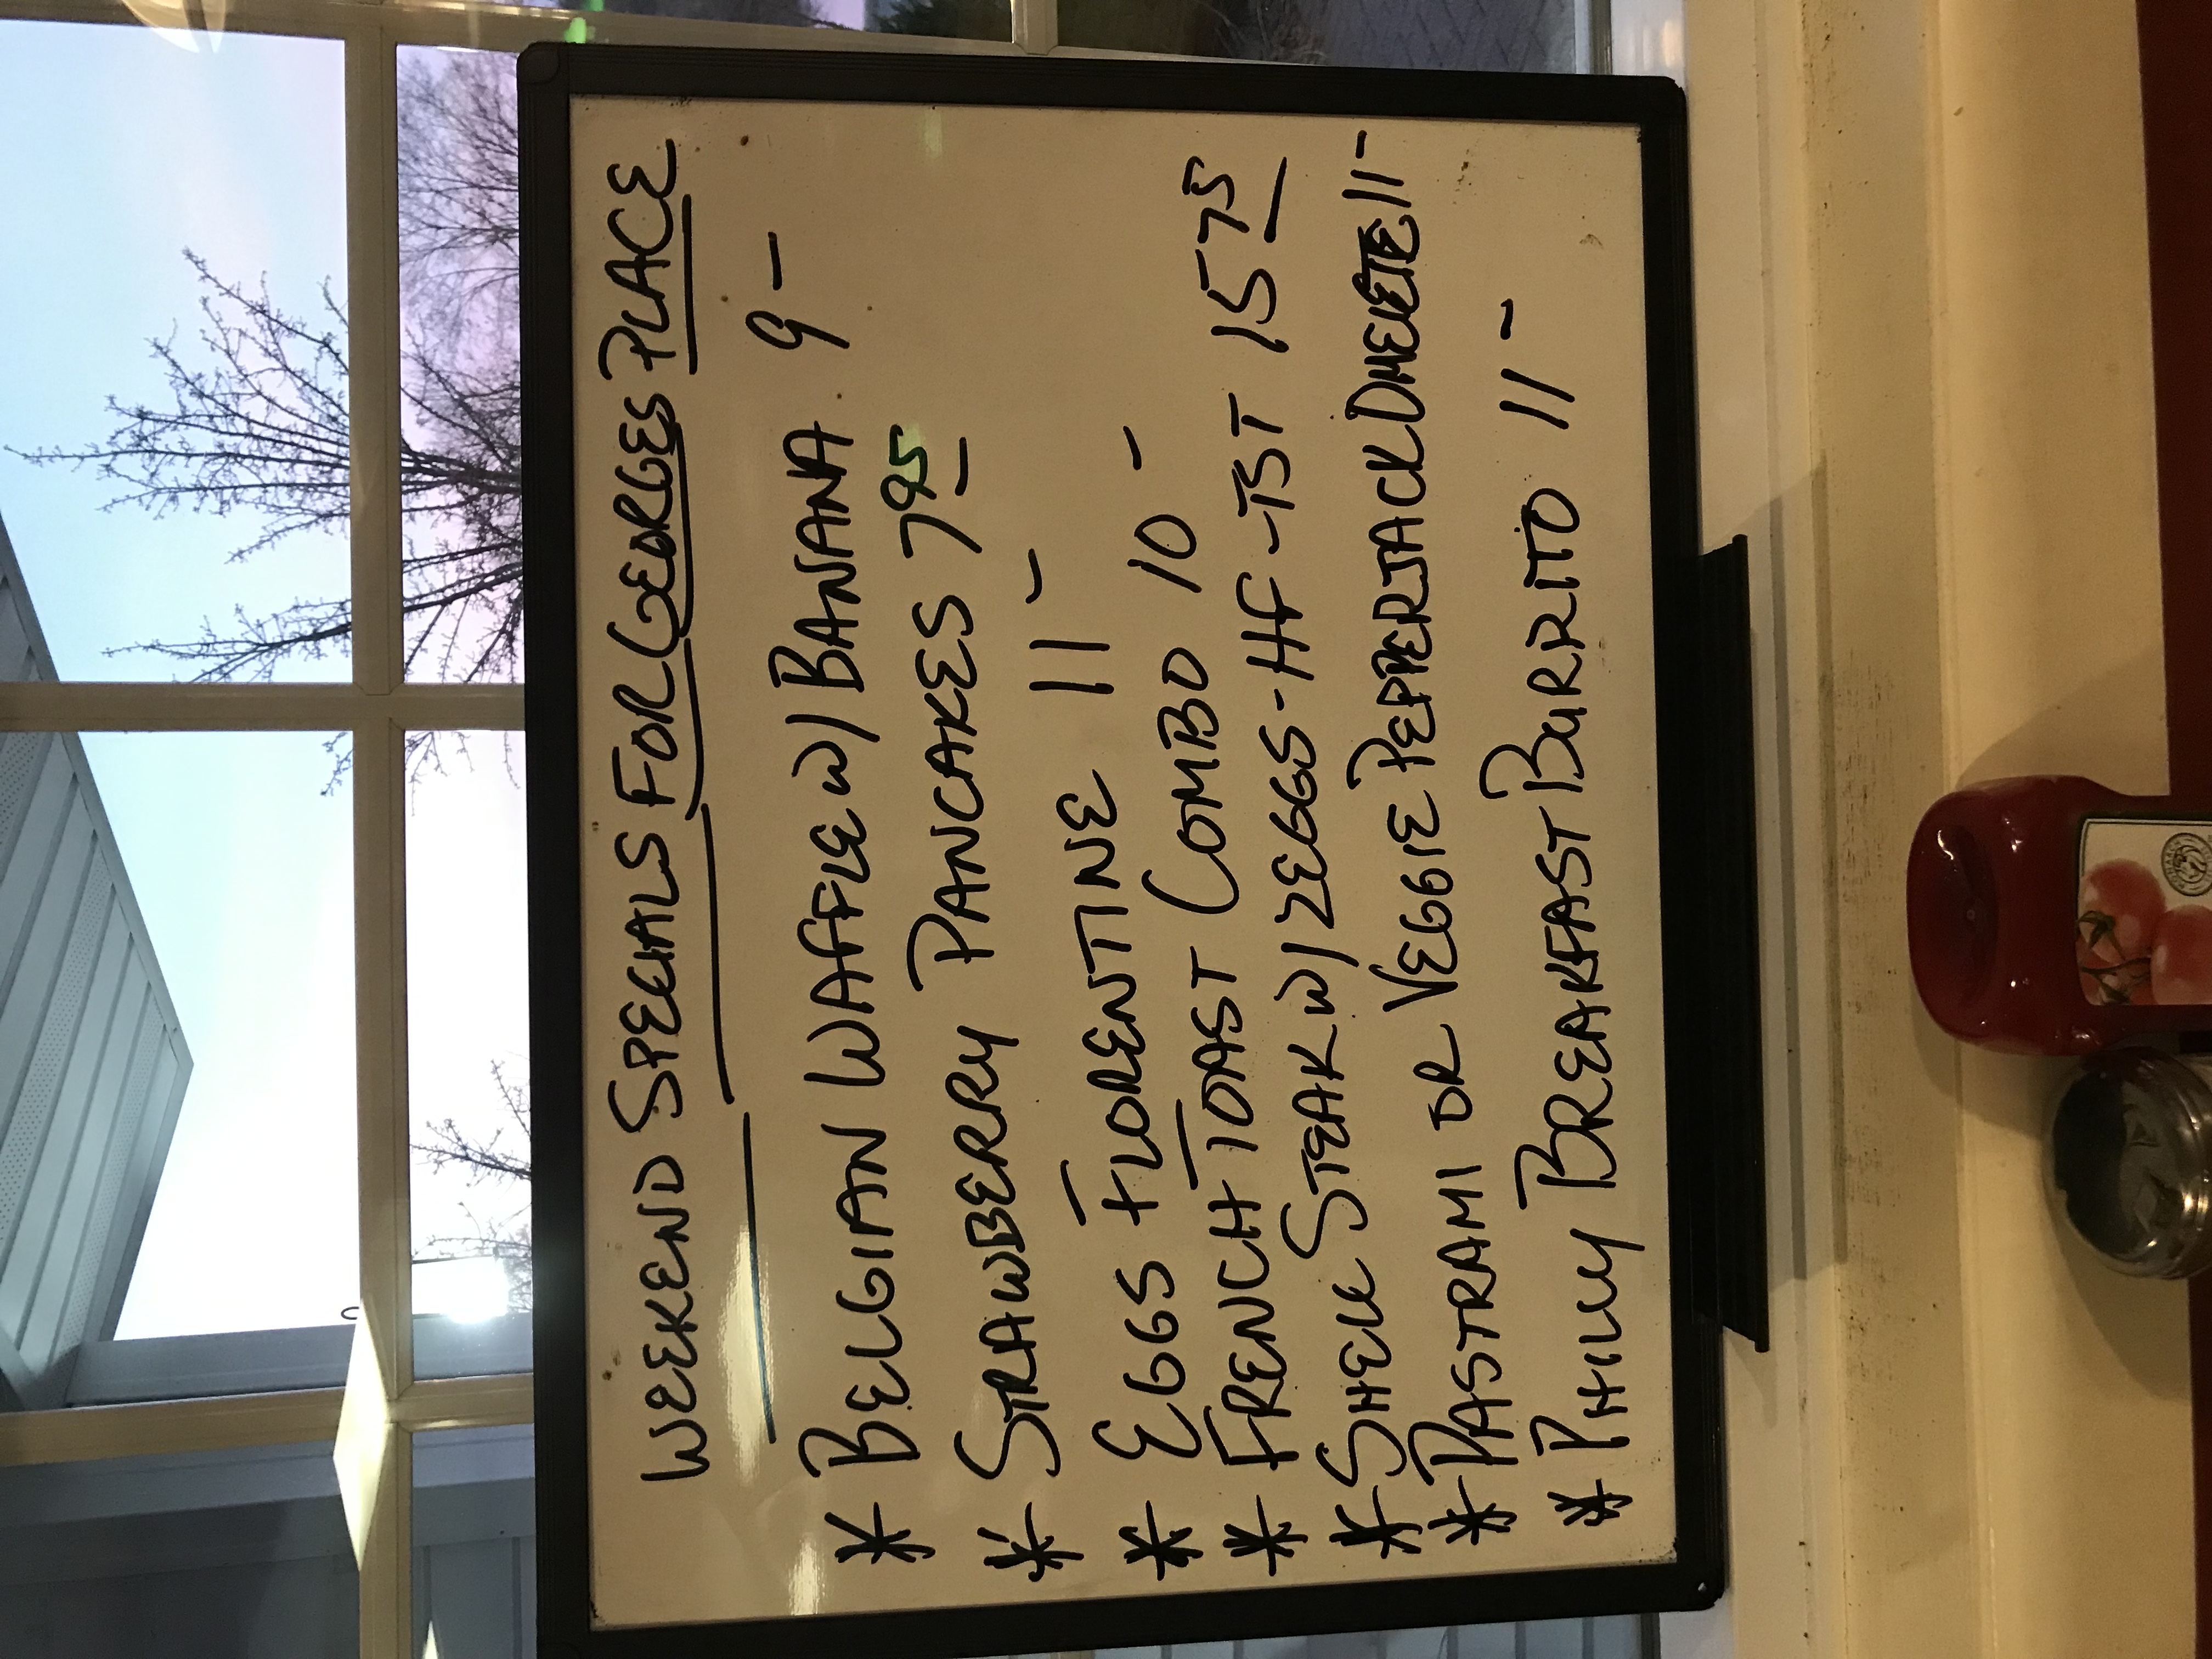 WEEKEND SPECIALS FOR GEORGES PLACE
* BELGIAN WAFFLE W/ BANANA 9-
* STRAWBERRY PANCAKES 7 95
* EGGS FLORENTINE 11-
* FRENCH TOAST COMBO 10-
* SHELL STEAK W/ 2 EGGS-HF-TST 15 75
* PASTRAMI OR VEGGIE PEPPERJACK OMELETTE 11-
* PHILLY BREAKFAST BURRITO 11-